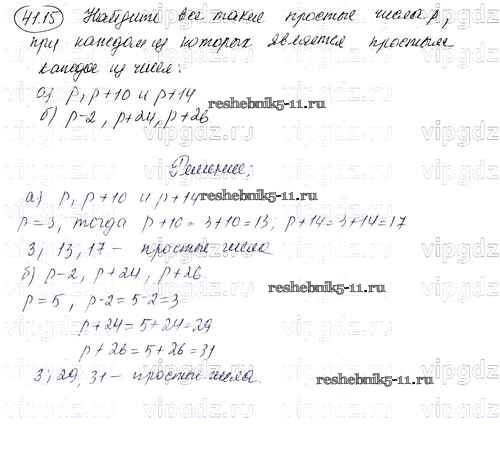 41.15 Найдите все такие простые числа p,
при каждом из которых является простым
каждое из чисел:
а) p, p+10 и p+14
reshebnik5-11.ru
б) p-2, p+24, p+26
Решение:
а) p, p+10 и p+14
reshebnik5-11.ru
p=3, тогда p+10=3+10=13, p+14=3+14=17
3, 13, 17 - простые числа
б) p-2, p+24, p+26
reshebnik5-11.ru
p=5, p-2=5-2=3
p+24=5+24=29
p+26=5+26=31
3, 29, 31 - простые числа.
reshebnik5-11.ru
vipgdz.ru